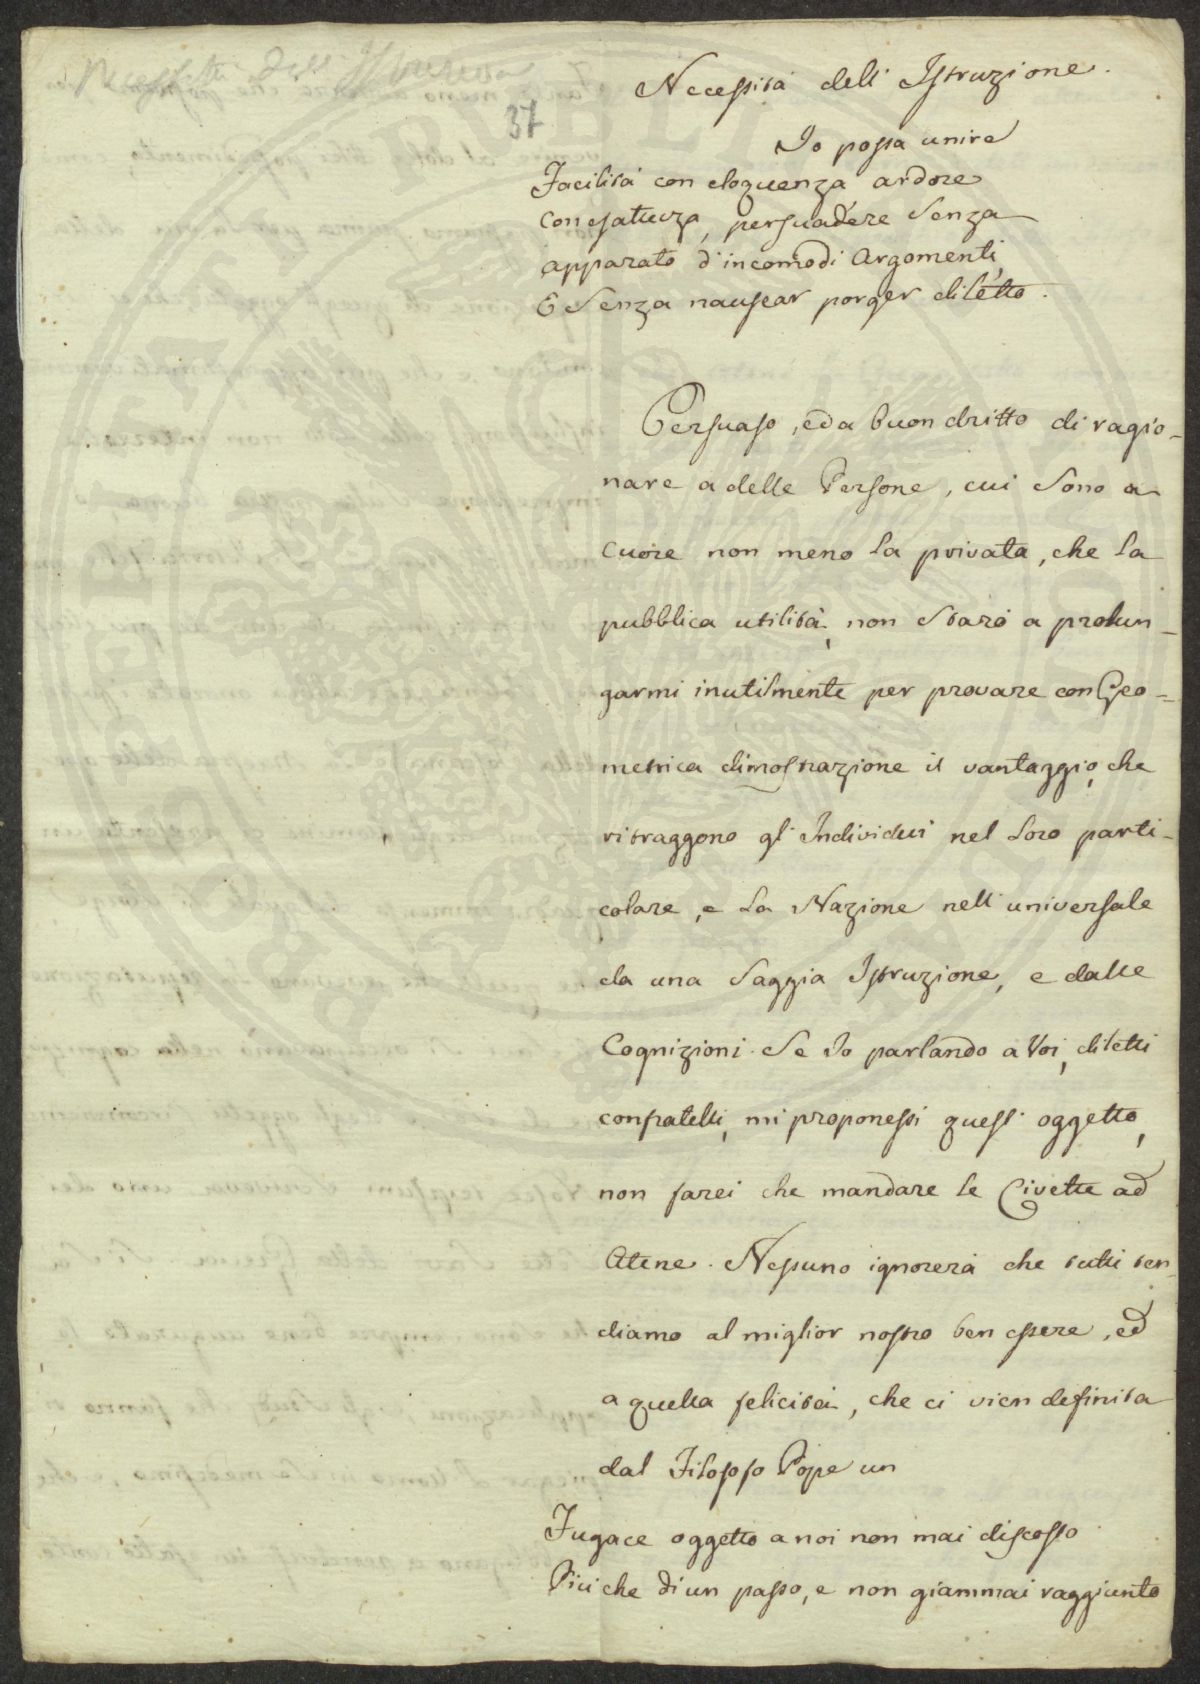 Necessità dell' Istruzione
37
Necessità dell' Istruzione.
Io possa unire
Facilità con eloquenza ardore
Con esattezza, persuadere Senza
apparato d'incomodi Argomenti,
E Senza nausear porger diletto.
Persuaso, ed a buon dritto di ragio-
nare a delle Persone, cui Sono a
Cuore non meno la privata, che la
pubblica utilità, non Starò a prolun-
garmi inutilmente per provare con Geo-
metrica dimostrazione il vantaggio, che
ritraggono gl' Individui nel Loro parti-
colare, e La Nazione nell' universale
da una Saggia Istruzione, e dalle
Cognizioni. Se Io parlando a Voi, diletti
confratelli, mi proponessi quest' oggetto,
non farei che mandare le Civette ad
Atene. Nessuno ignorerà che tutti ten-
diamo al miglior nostro ben essere, ed
a quella felicità, che ci vien definita
dal Filosofo Pope un
Fugace oggetto a noi non mai discosto
Più che di un passo, e non giammai raggiunto